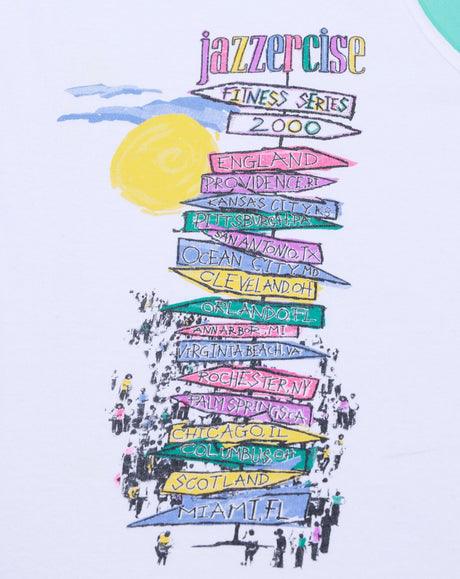 jazzercise
FITNESS SERIES
2000
ENGLAND
PROVIDENCE, RI
KANSAS CITY, KS
PITTSBURGH, PA
SAN ANTONIO, TX
OCEAN CITY, MD
CLEVELAND, OH
ORLANDO, FL
ANN ARBOR, MI
VIRGINIA BEACH, VA
ROCHESTER, NY
PALM SPRINGS, CA
CHICAGO, IL
COLUMBUS, OH
SCOTLAND
MIAMI, FL